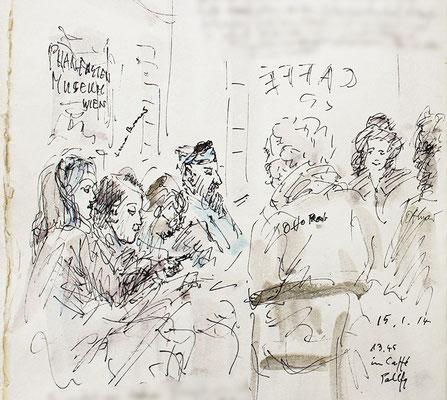 PHANTASTEN
MUSEUM
WIEN
CAFFE
Otto Rapp
15.1.14
13.45
in Caffé
Palffy